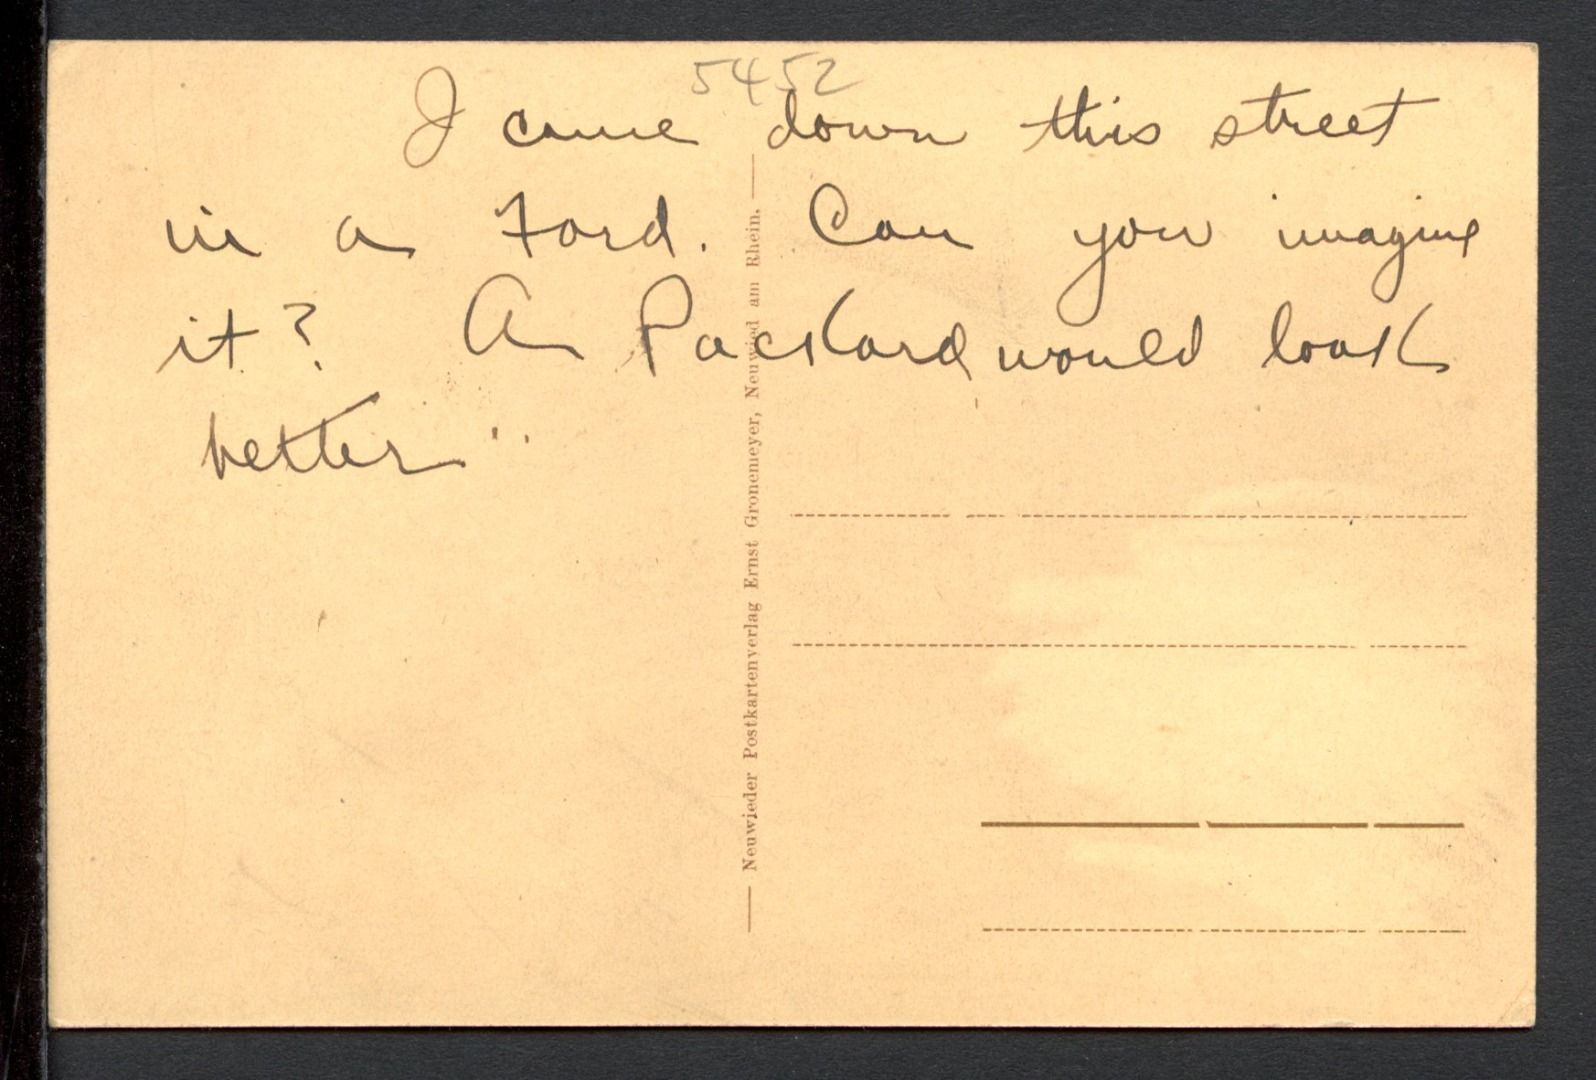 5452
I came down this street
in a Ford. Can you imagine
it? A Packard would look
better..
Neuwieder Postkartenverlag Ernst Gronemeyer, Neuwied am Rhein.